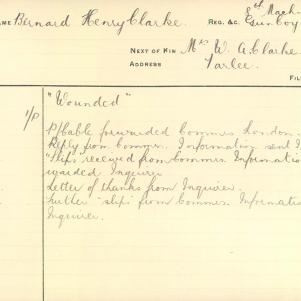 AME Bernard Henry Clarke. REG. &C.
NEXT OF KIN Mrs W. A. Clarke
ADDRESS Tarlee.
FIL
1/P "Wounded"
P/Cable forwarded Commrs London
Reply from Commrs. Information sent I
"Slips" received from Commrs Informatio
warded Inquirer
Letter of thanks from Inquirer
Further "slips" from Commrs Informati
Inquirer.